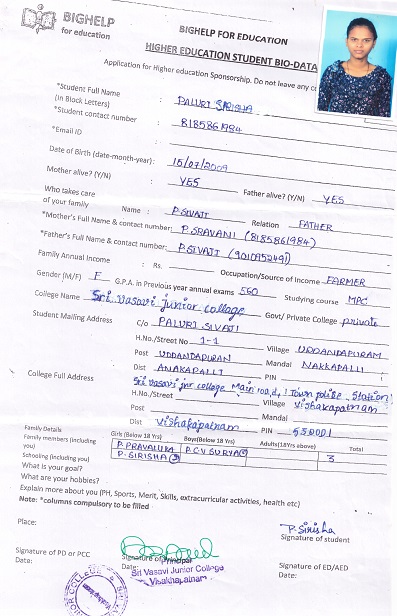 BIGHELP
for education
BIGHELP FOR EDUCATION
HIGHER EDUCATION STUDENT BIO-DATA
Application for Higher education Sponsorship. Do not leave any
*Student Full Name : PALURI SIRISHA
(in Block Letters)
*Student contact number : 8185861984
*Email ID :
Date of Birth (date-month-year): 15/07/2009
Mother alive? (Y/N) : YES Father alive? (Y/N) YES
Who takes care
of your family Name : P.SIVAJI Relation FATHER
*Mother's Full Name & contact number: P SRAVANI (8185861984)
*Father's Full Name & contact number: P SIVAJI
Family Annual Income : Rs. Occupation/Source of Income FARMER
Gender (M/F) F G.P.A. in Previous year annual exams 550 Studying course MPC
College Name Sri vasavi junior college Govt/ Private College private
Student Mailing Address C/o PALURI SIVAJI
H.No./Street No 1-1 Village UDDANDAPURAM
Post UDDANDAPURAM Mandal NAKKAPALLI
Dist ANAKAPALLI PIN
College Full Address Sri vasavi jnr college Main road, 1 Town police station
H.No./Street Village Vishakapatnam
Post Mandal
Dist Vishakapatnam PIN 530001
Family Details Girls (Below 18 Yrs) Boys(Below 18 Yrs) Adults(18Yrs above) Total
Family members (including you) P.PRAVALLIKA P.C.V.SURYA 3
Schooling (including you) P.SIRISHA
What is your goal?
What are your hobbies?
Explain more about you (PH, Sports, Merit, Skills, extracurricular activities, health etc)
Note: *columns compulsory to be filled
Place:
P. Sirisha
Signature of student
Signature of PD or PCC Signature of Principal Signature of ED/AED
Date: Date: Date:
Sri Vasavi Junior College
Visakhapatnam